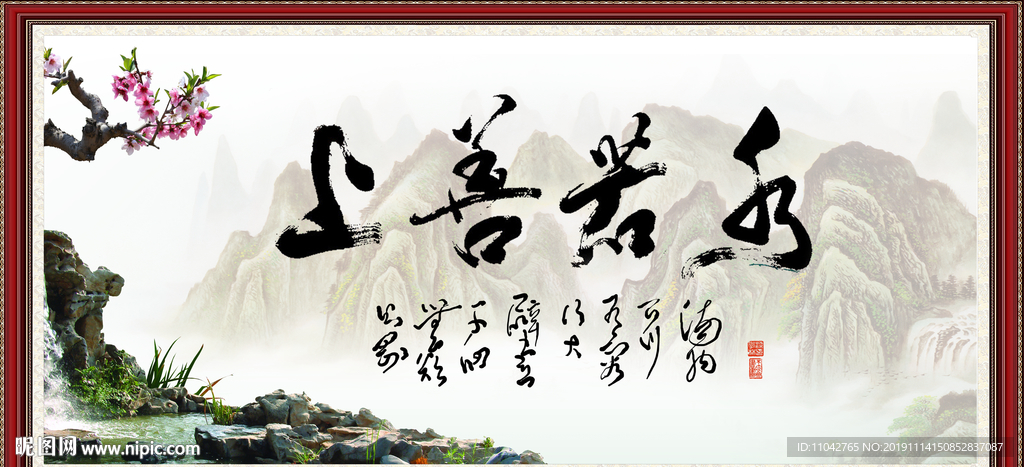 上善若水
海纳
百川
有容
乃大
壁立
千仞
無欲
则刚
昵图网 www.nipic.com
ID:11042765 NO:20191114150852837087